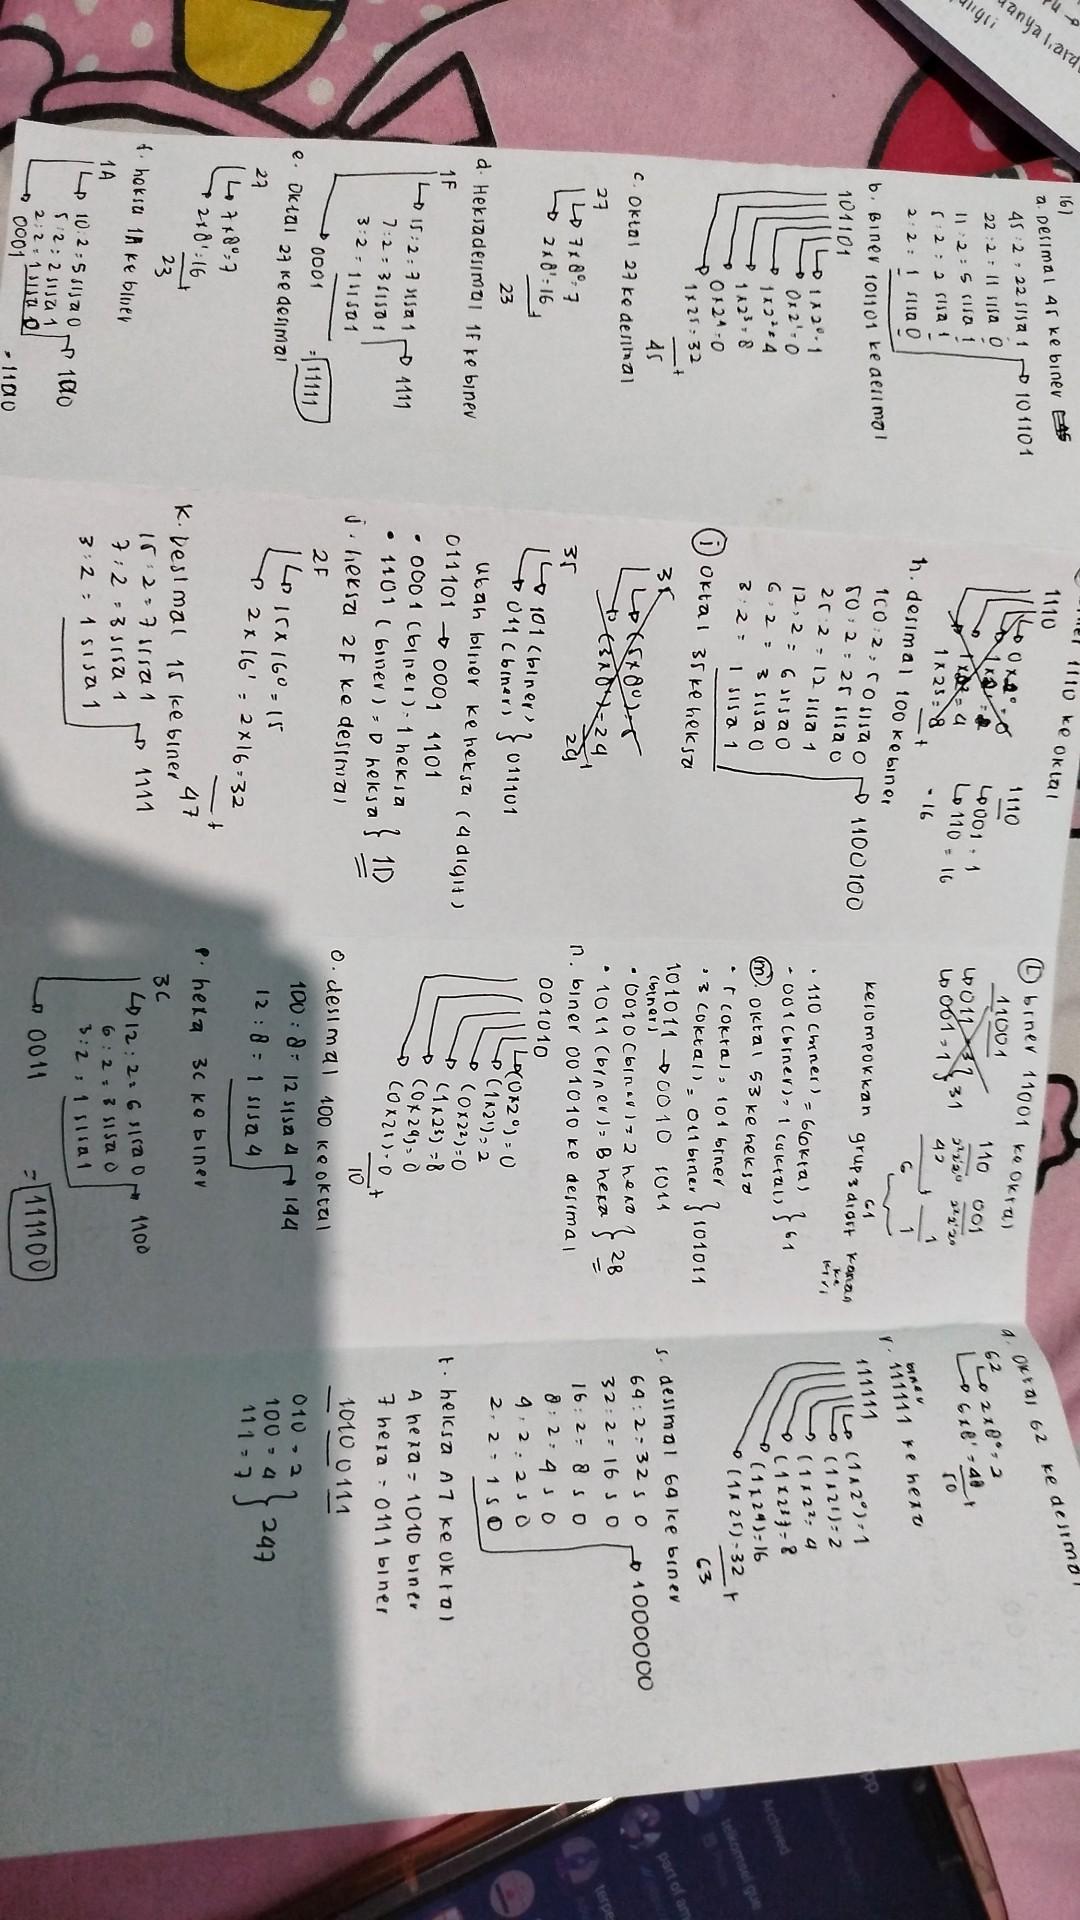 16)
a. Desimal 45 ke biner
45 : 2 = 22 sisa 1
22 : 2 = 11 sisa 0
11 : 2 = 5 sisa 1
5 : 2 = 2 sisa 1
2 : 2 = 1 sisa 0
101101
b. Biner 101101 ke desimal
101101
1x2⁰=1
0x2¹=0
1x2²=4
1x2³=8
0x2⁴=0
1x2⁵=32
+
45
c. Oktal 27 ke desimal
27
7x8⁰=7
2x8¹=16
+
23
d. Heksadesimal 1F ke biner
1F
15 : 2 = 7 sisa 1
7 : 2 = 3 sisa 1
3 : 2 = 1 sisa 1
1111
0001
= 11111
e. Oktal 27 ke desimal
27
7x8⁰=7
2x8¹=16
+
23
f. heksa 1A ke biner
1A
10 : 2 = 5 sisa 0
5 : 2 = 2 sisa 1
2 : 2 = 1 sisa 0
0001
1110 ke oktal
1110
1x2³=8
+
1110
001 = 1
110 = 16
= 16
h. desimal 100 ke biner
100 : 2 = 50 sisa 0
50 : 2 = 25 sisa 0
25 : 2 = 12 sisa 1
12 : 2 = 6 sisa 0
6 : 2 = 3 sisa 0
3 : 2 = 1 sisa 1
1100100
i oktal 35 ke heksa
35
(5x8⁰)=5
(3x8¹)=24
+
35
101 (biner)
011 (biner) } 011101
Ubah biner ke heksa (4 digit)
011101 → 0001 1101
• 0001 (biner) = 1 heksa
• 1101 (biner) = D heksa } 1D
j. heksa 2F ke desimal
2F
15 x 16⁰ = 15
2 x 16¹ = 2x16 = 32
+
47
k. Desimal 15 ke biner
15 : 2 = 7 sisa 1
7 : 2 = 3 sisa 1
3 : 2 = 1 sisa 1
1111
L biner 11001 ke oktal
11001
001 = 1 } 31
110 001
6 1
61
kelompokkan grup 3 digit kanan ke kiri
• 110 (biner) = 6 (okta)
• 001 (biner) = 1 (oktal) } 61
m. oktal 53 ke heksa
• 5 (oktal) = 101 biner
• 3 (oktal) = 011 biner } 101011
101011 → 0010 1011
(biner)
• 0010 (biner) = 2 hexa
• 1011 (biner) = B hexa } 2B
n. biner 001010 ke desimal
001010
(0x2⁰)=0
(1x2¹)=2
(0x2²)=0
(1x2³)=8
(0x2⁴)=0
(0x2⁵)=0
+
10
o. desimal 100 ke oktal
100 : 8 = 12 sisa 4
12 : 8 = 1 sisa 4
144
p. hexa 3C ke biner
3C
12 : 2 = 6 sisa 0
6 : 2 = 3 sisa 0
3 : 2 = 1 sisa 1
1100
0011
= 111100
q. Oktal 62 ke desimal
62
2x8⁰=2
6x8¹=48
+
50
r. biner 111111 ke hexa
111111
(1x2⁰)=1
(1x2¹)=2
(1x2²=4
(1x2³)=8
(1x2⁴)=16
(1x2⁵)=32
+
63
s. desimal 64 ke biner
64 : 2 = 32 s 0
32 : 2 = 16 s 0
16 : 2 = 8 s 0
8 : 2 = 4 s 0
4 : 2 = 2 s 0
2 : 2 = 1 s 0
1000000
t. heksa A7 ke oktal
A hexa = 1010 biner
7 hexa = 0111 biner
10100111
010 = 2
100 = 4
111 = 7 } 247
Archived
telkomsel gue
part of am
terpe